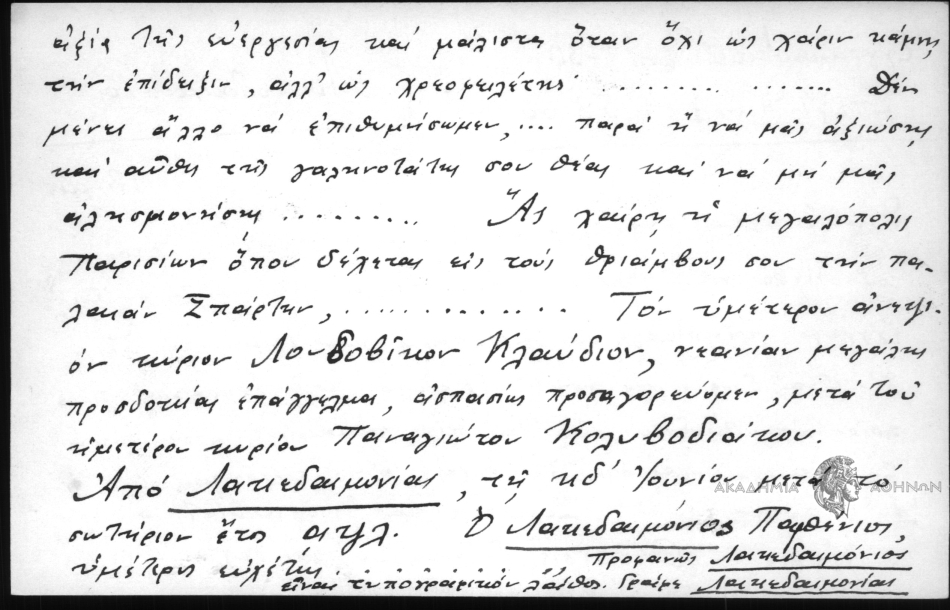 ἀξία τῆς εὐεργεσίας καί μάλιστα ὅταν ὄχι ὡς χάριν κάμνῃς
τήν ἐπίδειξιν, ἀλλ' ὡς χρεοφειλέτης ......... ....... Δέν
μένει ἄλλο νά ἐπιθυμήσωμεν, .... παρά ἤ νά μᾶς ἀξιώσῃς
καί αὖθις τῆς γαληνοτάτης σου θέας καί νά μή μᾶς
ἀλησμονήσῃς ......... Ἄς χαίρῃ ἡ μεγαλόπολις
Παρισίων ὅπου δέχεται εἰς τούς θριάμβους σου τήν πα-
λαιάν Σπάρτην, .............. Τόν ὑμέτερον ἀνεψι-
όν κύριον Λουδοβῖκον Κλαύδιον, νεανίαν μεγάλης
προσδοκίας ἐπάγγελμα, ἀσπασίως προσαγορεύομεν, μετά τοῦ
ἡμετέρου κυρίου Παναγιώτου Κολυβοδιάκου.
Ἀπό Λακεδαιμονίας, τῇ κδ' Ἰουνίου μετά τό
ΑΚΑΔΗΜΙΑ ΑΘΗΝΩΝ
σωτήριον ἔτος αψλ. Ὁ Λακεδαιμόνιος Παρθένιος,
ὑμέτερος εὐχέτης. . . . . . . . . Προφανῶς Λακεδαιμόνιος
εἶναι τυπογραφικόν λάθος. Γράφε Λακεδαιμονίας